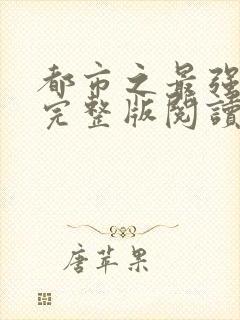 都市之最强
完整版閱讀
唐苹果